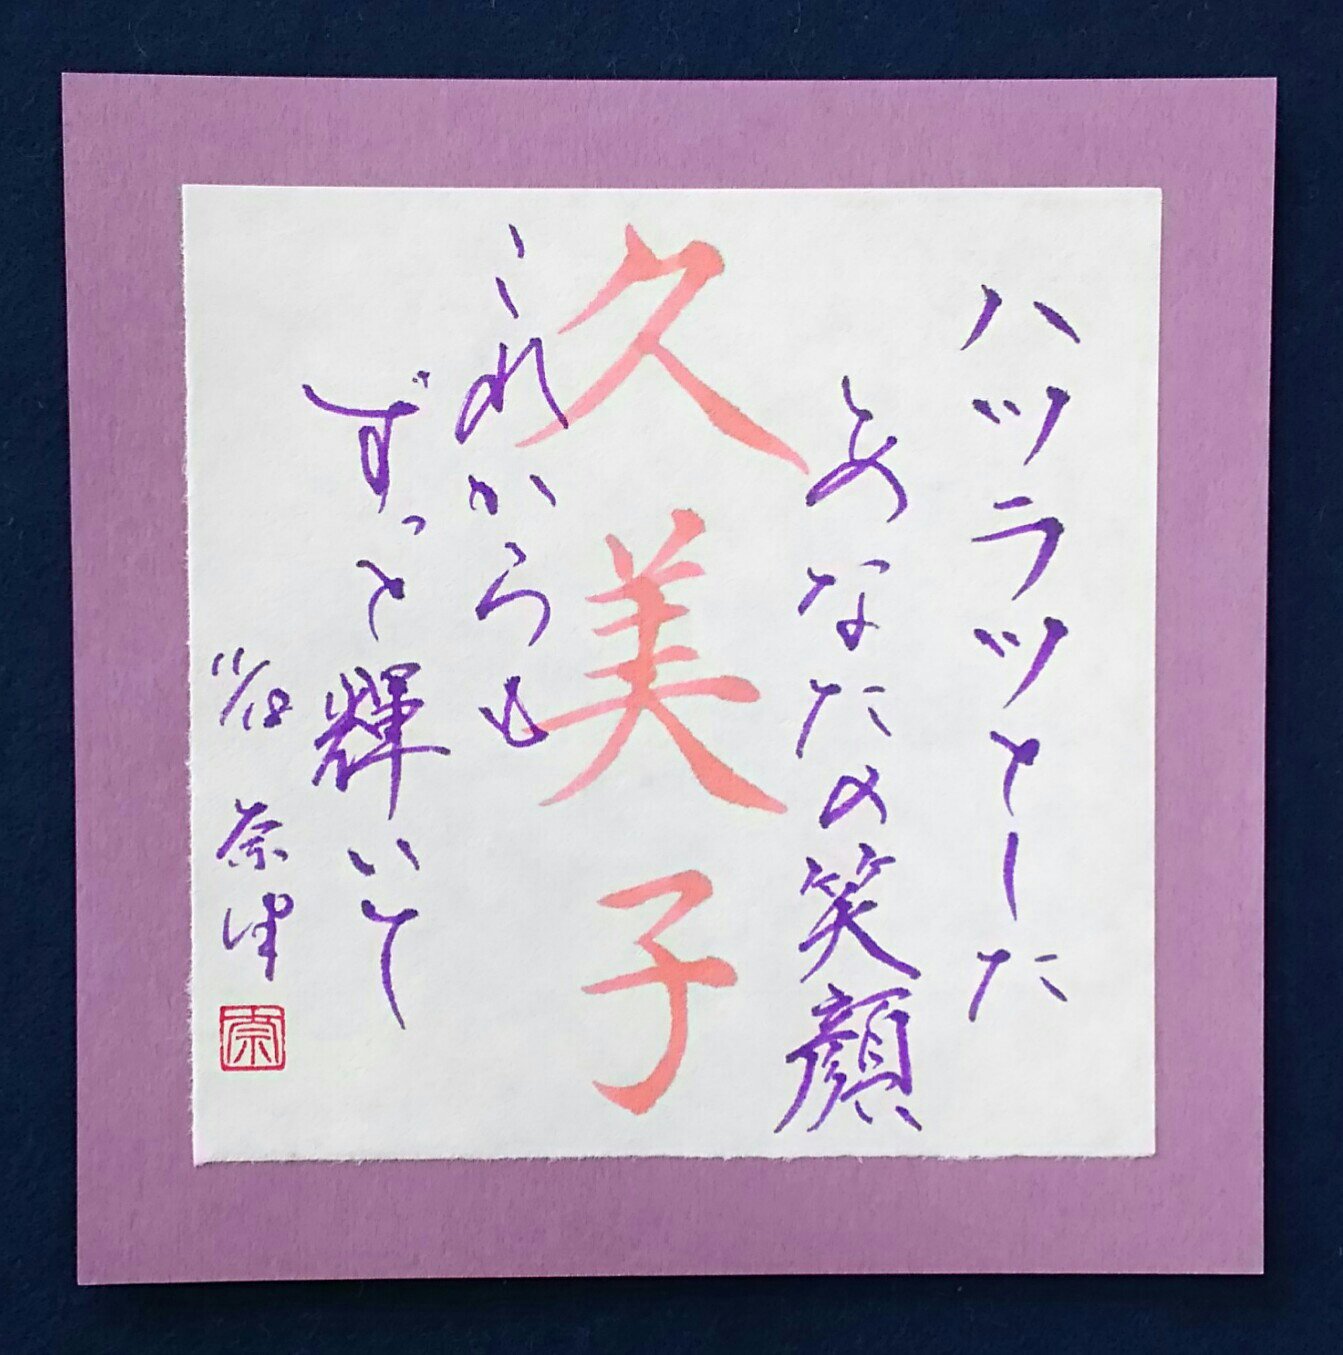 ハツラツとした
あなたの笑顔
久美子
これからも
ずっと輝いて
11/18
奈